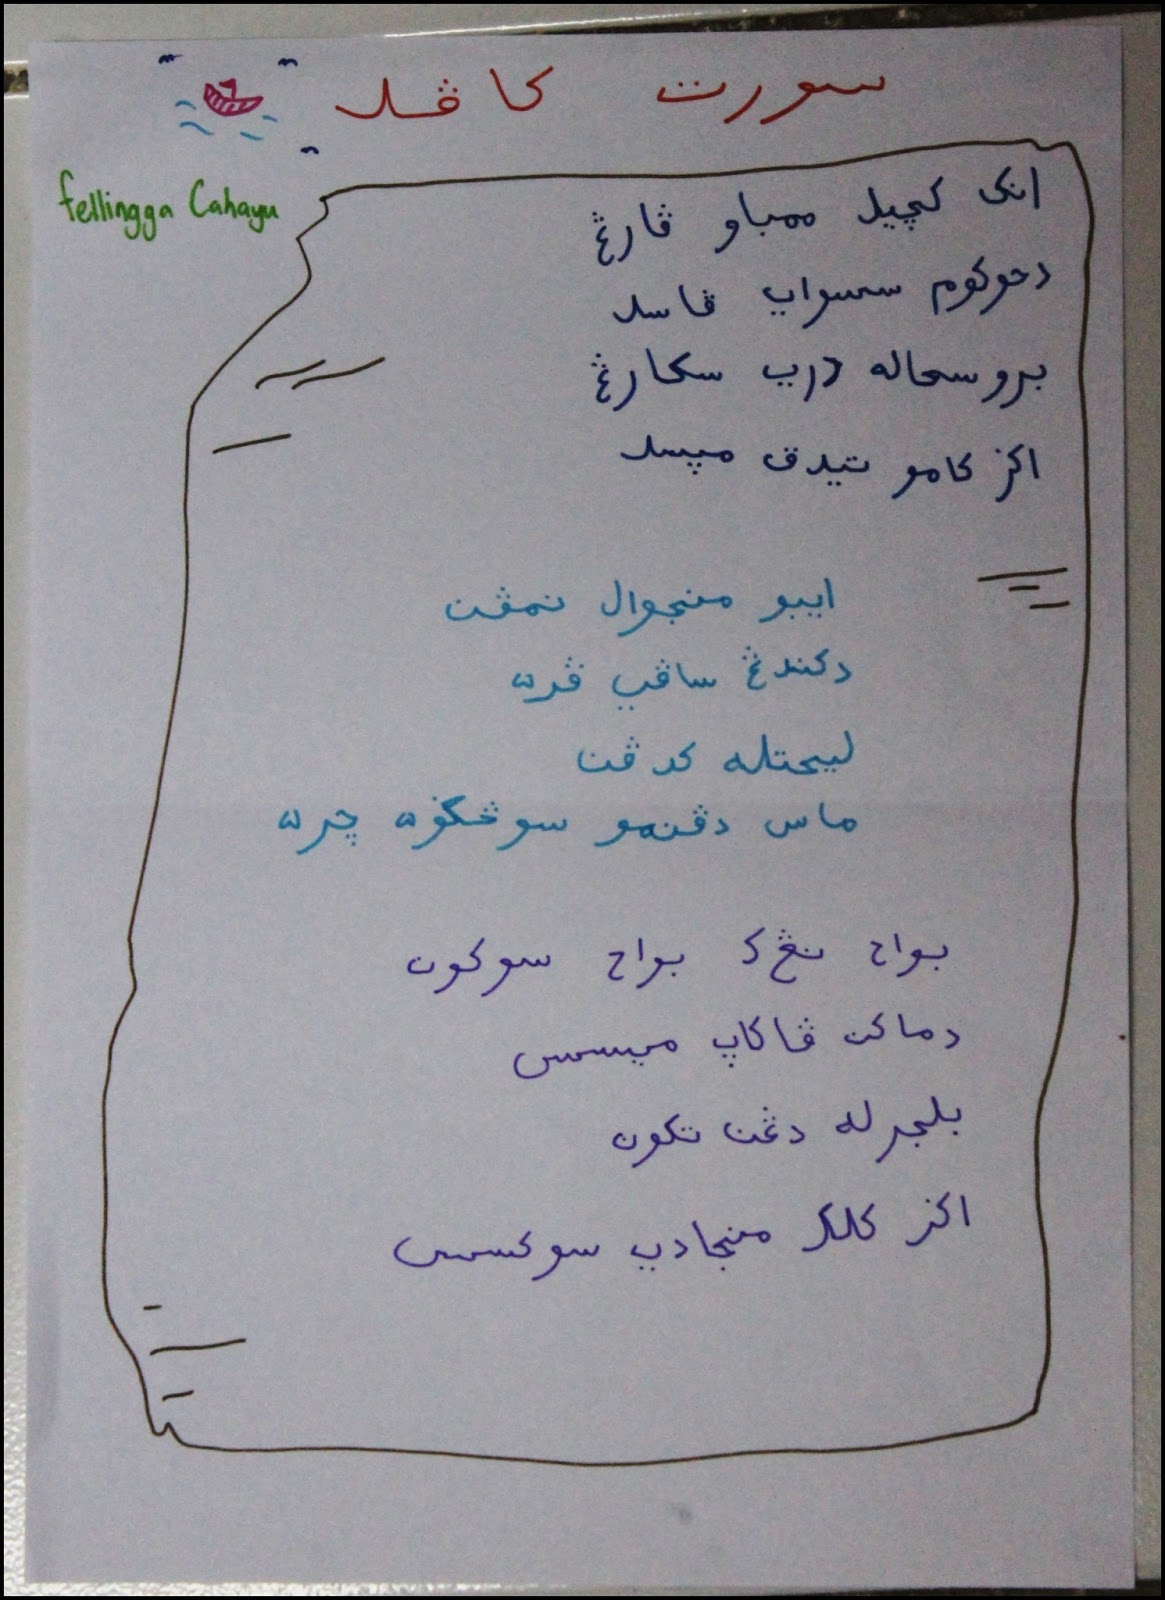 سورت کاڤل
fellingga Cahayu
انک کچيل ممباو ڤارڠ
دحوکوم سسواي ڤاسل
بروسحاله دري سکارڠ
اکر کامو تيدق مپسل
ايبو منجوال نمڤن
دکندڠ ساڤي ڤره
ليحتله کدڤن
ماس دڤنمو سوڠگوه چره
بواح نڠک بواح سوکون
دماکن ڤاکاي ميسس
بلجرله دڠن تکون
اکر کلک منجادي سوکسس